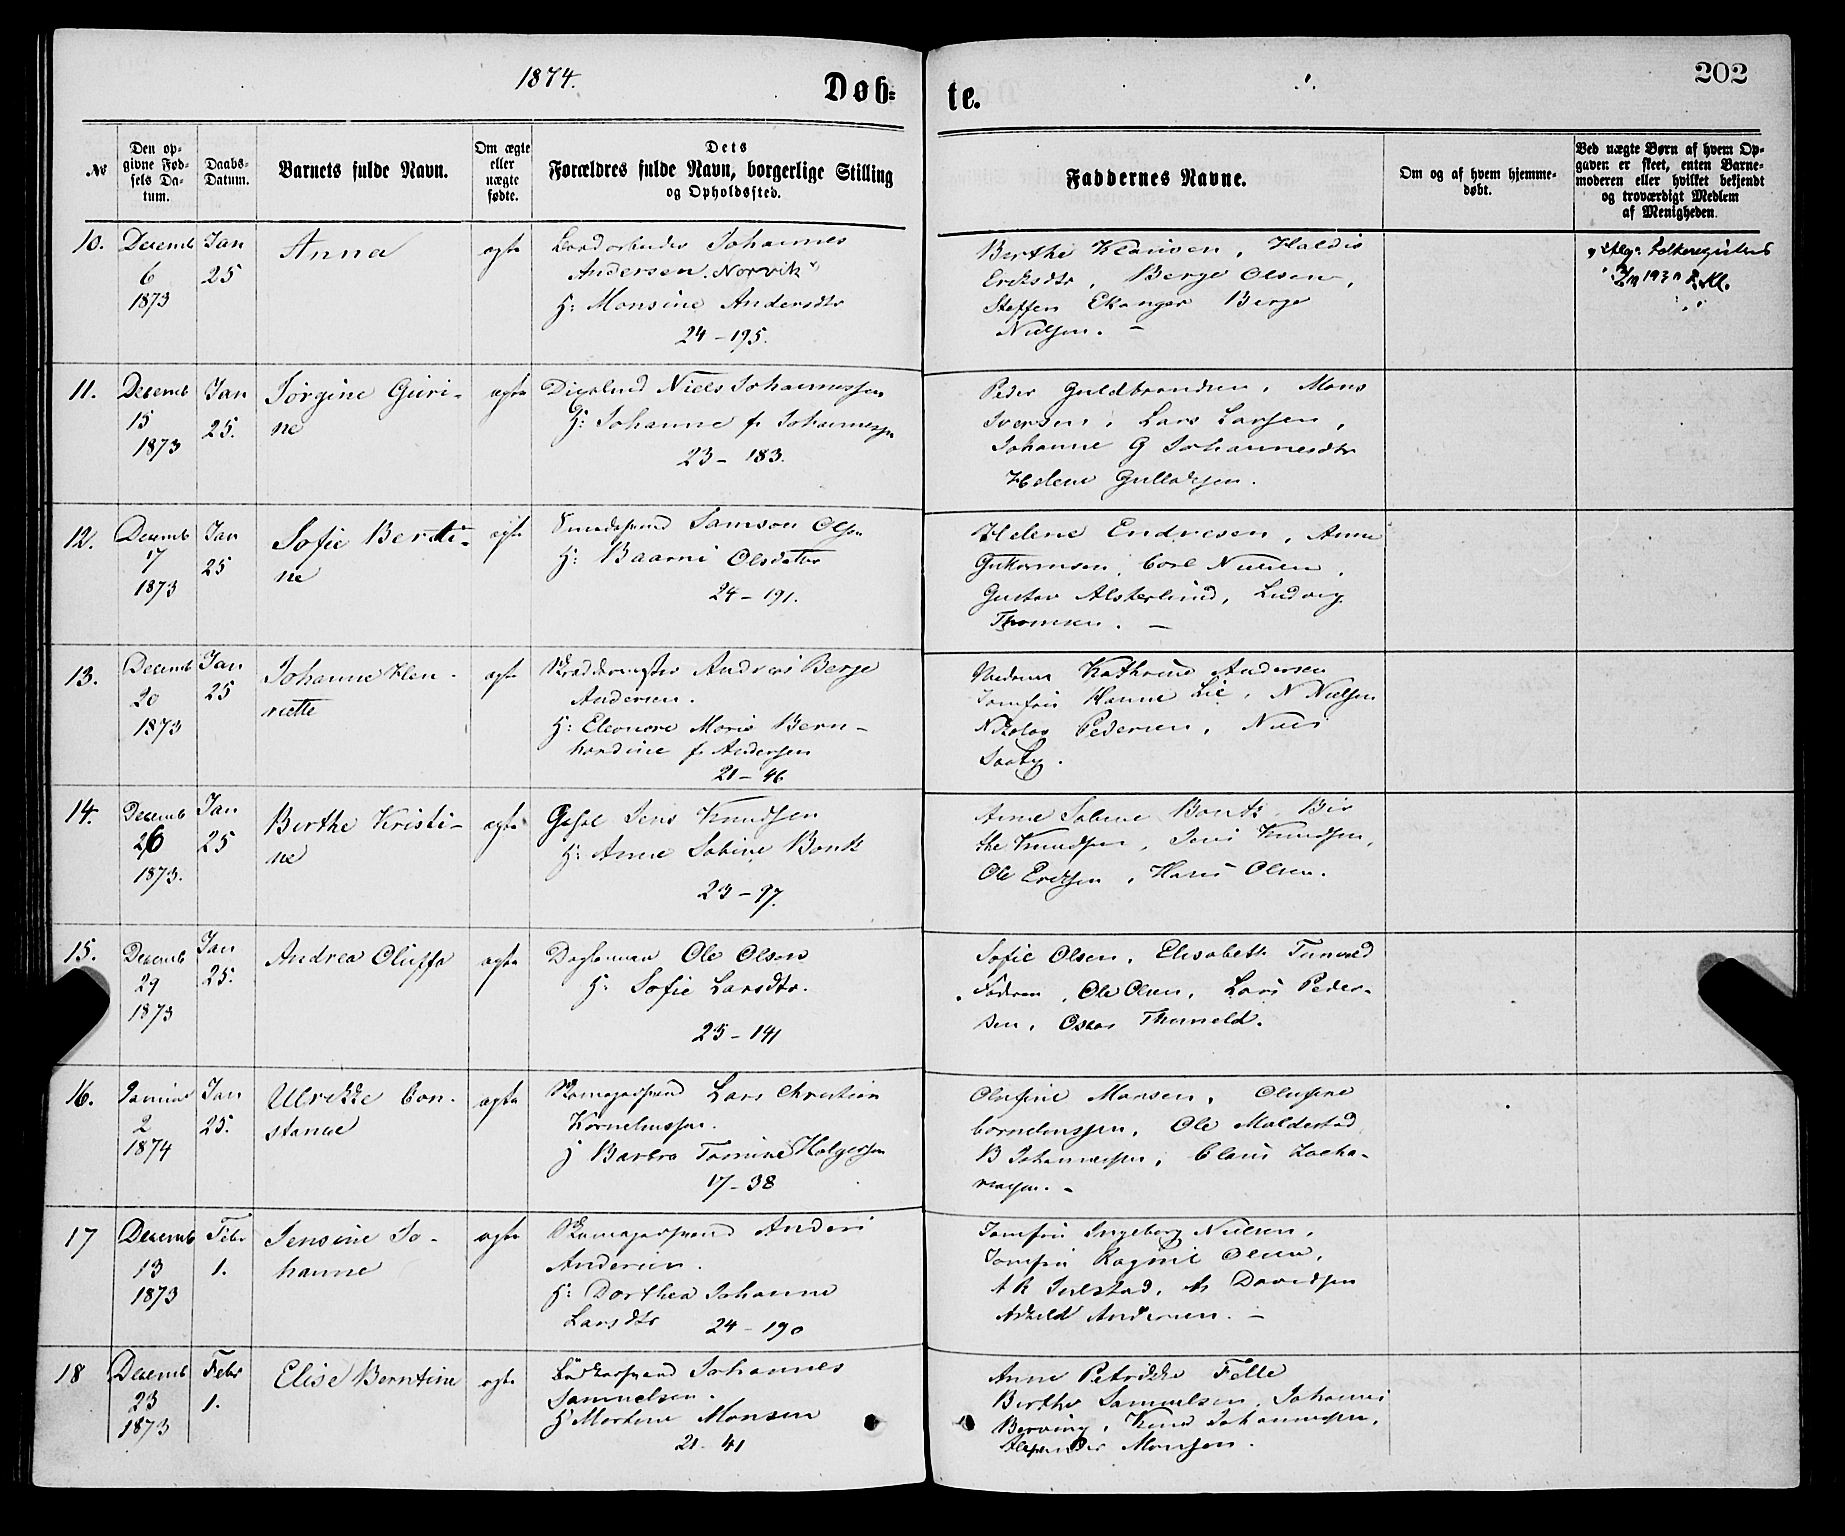 1874.
Døb-
te.
202
№
Den op-
givne Fød-
sels Da-
tum.
Daabs-
Datum.
Barnets fulde Navn.
Om ægte
eller
uægte
fødte.
Dets
Forældres fulde Navn, borgerlige Stilling
og Opholdssted.
Faddernes Navne.
Om og af hvem hjemme-
døbt.
Ved uægte Børn af hvem Op-
gaven er skeet, enten Barne-
moderen eller hvilket bekjendt
og troværdigt Medlem
af Menigheden.
10.
Decemb
6
1873
Jan
25
Anna
ægte
Johannes
Andersen. Norvik
H: Monsine Andersdtr
24 - 195.
Berthe Klausen, Haldis
Eriksdtr, Berge Olsen,
Steffen Ekanger Berge
Nielsen. -
11.
Decemb
15
1873
Jan
25.
Jørgine Guri-
ne
ægte
Niels Johannessen
H: Johanne f. Johannessen
23 - 183.
Peder Guldbrandsen, Mons
Iversen, Lars Larsen,
Johanne G Johannesdtr
Helene Gullaksen.
12.
Decemb
17
1873
Jan
25
Sofie Berti-
ne
ægte
Samson Olsen
H: Baarni Olsdatter
24 - 191.
Helene Endresen, Anne
Guttormsen, Carl Nielsen,
Gustav Alsterlund, Ludvig
Thomsen. -
13.
Decemb
20
1873
Jan
25
Johanne Hen-
riette
ægte
Andreas Berge
Andersen.
H: Eleonore Marie Bern-
hardine f. Andersen
21 - 46
Kathrine Andersen
Jomfru Hanne Lie, N Nielsen
Nikolai Pedersen, Niels
14.
Decemb
26
1873.
Jan
25
Berthe Kristi-
ne
ægte
Jens Knudsen
H: Anne Sabine Bontz
23 - 97.
Anne Sabine Bontz, Ber
the Knudsen, Jens Knudsen,
Ole Eriksen, Hans Olsen.
15.
Decemb
29
1873
Jan
25.
Andrea Oluffa
ægte
Ole Olsen
H: Sofie Larsdtr.
25 - 141
Sofie Olsen, Elisabeth
Ole Olsen, Lars Peder-
sen, Oskar
16.
Januar
2
1874
Jan
25.
Ulrikke Con-
stance
ægte
Skomagersvend Lars Christian
Kornelius­sen.
H Barbra Tomine Holgersen
17 - 38
Olufine Monsen, Olufine
Corneliussen, Ole Maldestad
B Johannessen, Claus Zacha-
riassen. -
17
Decemb
13
1873
Febr
1.
Jensine Jo-
hanne
ægte
Skomagersvend Anders
Andersen.
H: Dorthea Johanne
Larsdtr 24 - 190
Jomfru Ingeborg Nielsen,
Jomfru Ragnil Olsen,
Davidsen
Andersen. -
18
Decemb
23
1873
Febr
1.
Elise Berntine
ægte
Bødkersvend Johannes
Samuelsen.
H Martine Monsen
21. 41
Anne Petrikke Felle
Berthe Samuelsen, Johannes
Knud Johannessen,
Monsen.